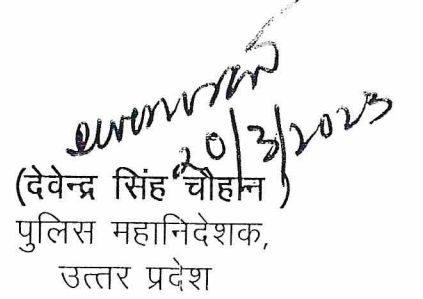 20/3/2023
(देवेन्द्र सिंह चौहान)
पुलिस महानिदेशक,
उत्तर प्रदेश